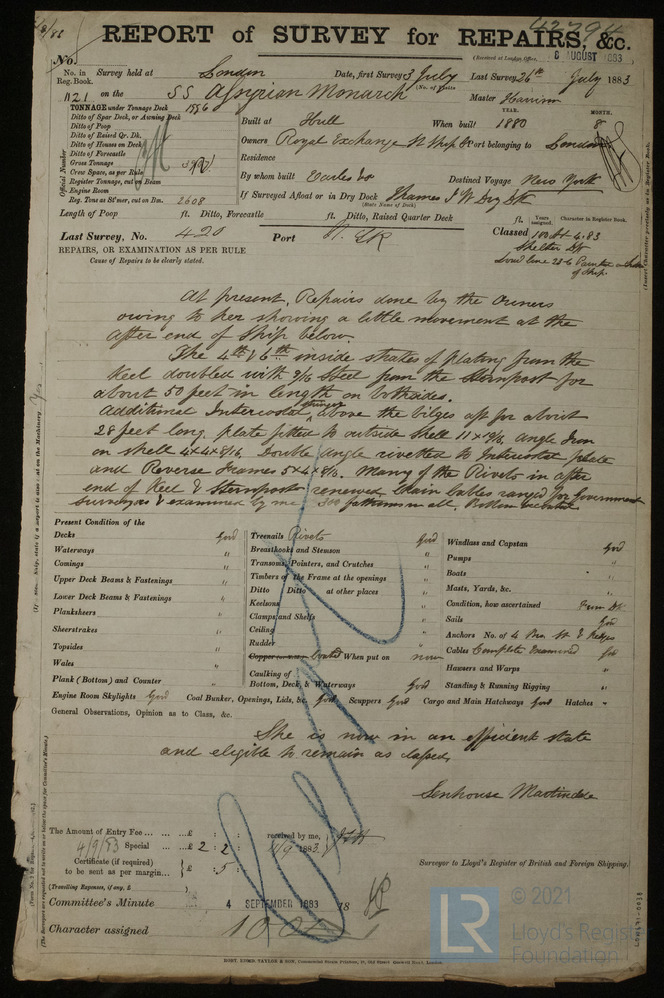 42794
REPORT of SURVEY for REPAIRS, &c.
(Received at London Office, 8 AUGUST 1883
No.
No. in Reg. Book. Survey held at London Date, first Survey 3 July Last Survey 26th July 1883
(No. of Visits
1121 on the SS Assyrian Monarch Master Harrison
TONNAGE under Tonnage Deck 1556
Ditto of Spar Deck, or Awning Deck
Ditto of Poop
Ditto of Raised Qr. Dk.
Ditto of Houses on Deck
Ditto of Forecastle
Gross Tonnage
Crew Space, as per Rule
Register Tonnage, cut on Beam
Engine Room
Reg. Tons as St'mer, cut on Bm. 2608
Official Number
YEAR. MONTH.
Built at Hull When built 1880 8
Owners Royal Exchange St Ship Co Port belonging to London
Residence
By whom built Earles Co Destined Voyage New York
If Surveyed Afloat or in Dry Dock Thames I W Dry Dk
(State Name of Dock.)
Length of Poop ft. Ditto, Forecastle ft. Ditto, Raised Quarter Deck ft.
Years assigned. Character in Register Book.
Last Survey, No. 420 Port N. Yk Classed 100 A1 4.83
Shelter Dk
REPAIRS, OR EXAMINATION AS PER RULE
Cause of Repairs to be clearly stated.
of Ship.
At present, Repairs done by the Owners
owing to her showing a little movement at the
after end of ship below.
The 4th & 6th inside strakes of plating from the
Keel doubled with 9/16 Steel from the Sternpost for
about 50 feet in length on both sides.
Additional Intercostal Stringer above the bilges aft for about
28 feet long, plate fitted to outside shell angle Iron
on shell 4x4x8/16. Double angle rivetted to Intercostal plate
and Reverse frames 5x4x8/16. Many of the Rivets in after
end of Keel & Sternpost renewed. Chain Cables ranged for Government
Surveyors & examined by me 300 fathoms in all. Bottom recoated
Present Condition of the
Decks Good
Waterways "
Comings "
Upper Deck Beams & Fastenings "
Lower Deck Beams & Fastenings "
Planksheers "
Sheerstrakes "
Topsides "
Wales "
Plank (Bottom) and Counter "
Treenails Rivets Good
Breasthooks and Stemson "
Transoms, Pointers, and Crutches "
Timbers of the Frame at the openings "
Ditto Ditto at other places "
Keelsons "
Clamps and Shelfs "
Ceiling "
Rudder "
Coated When put on now
Caulking of
Bottom, Deck, & Waterways Good
Windlass and Capstan Good
Pumps "
Boats "
Masts, Yards, &c. "
Condition, how ascertained From Dk
Sails Good
Anchors No. of 4 Bow St & Kedges
Cables Complete Examined Good
Hawsers and Warps "
Standing & Running Rigging "
Engine Room Skylights Good Coal Bunker, Openings, Lids, &c. Good Scuppers Good Cargo and Main Hatchways Good Hatches "
General Observations, Opinion as to Class, &c.
She is now in an efficient state
and eligible to remain as classed,
Senhouse Martindale
The Amount of Entry Fee ... ... £ : :
4/9/83 Special ... £ 2 : 2 received by me, 4/9 1883
Certificate (if required) to be sent as per margin... £ : 5
(Travelling Expenses, if any, £
Surveyor to Lloyd's Register of British and Foreign Shipping.
Committee's Minute 4 SEPTEMBER 1883 18
Character assigned 100 A1
LR
© 2021
Lloyd's Register
Foundation